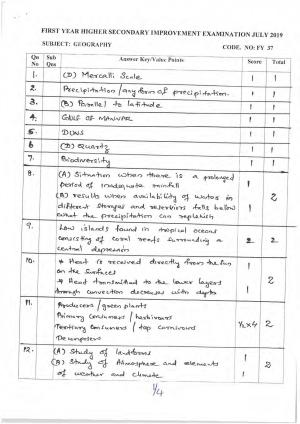 FIRST YEAR HIGHER SECONDARY IMPROVEMENT EXAMINATION JULY 2019
SUBJECT: GEOGRAPHY CODE. NO: FY 37
Qn No Sub Qns Answer Key/Value Points Score Total
1. (D) Mercalli Scale 1 1
2. Precipitation / any form of precipitation. 1 1
3. (B) Parallel to latitude 1 1
4. GULF OF MANNAR 1 1
5. DUNS 1 1
6 (D) Quartz 1 1
7. Biodiversity 1 1
8. (A) Situation when there is a prolonged
period of inadequate rainfall 1
(A) results when availability of water in
different storages and reservoirs falls below 1
what the precipitation can replenish 2
9. Low islands found in tropical oceans
consisting of coral reefs surrounding a 2 2
central depression
10. * Heat is received directly from the sun
on the surfaces 1
* Heat transmitted to the lower layers
through convection decreases with depth 1 2
11. Producers / green plants
Primary consumers / herbivores
Tertiary consumers / top carnivores ½ x 4 2
Decomposers
12. (A) Study of landforms 1
(B) Study of Atmosphere and elements
of weather and climate 1 2
1/4